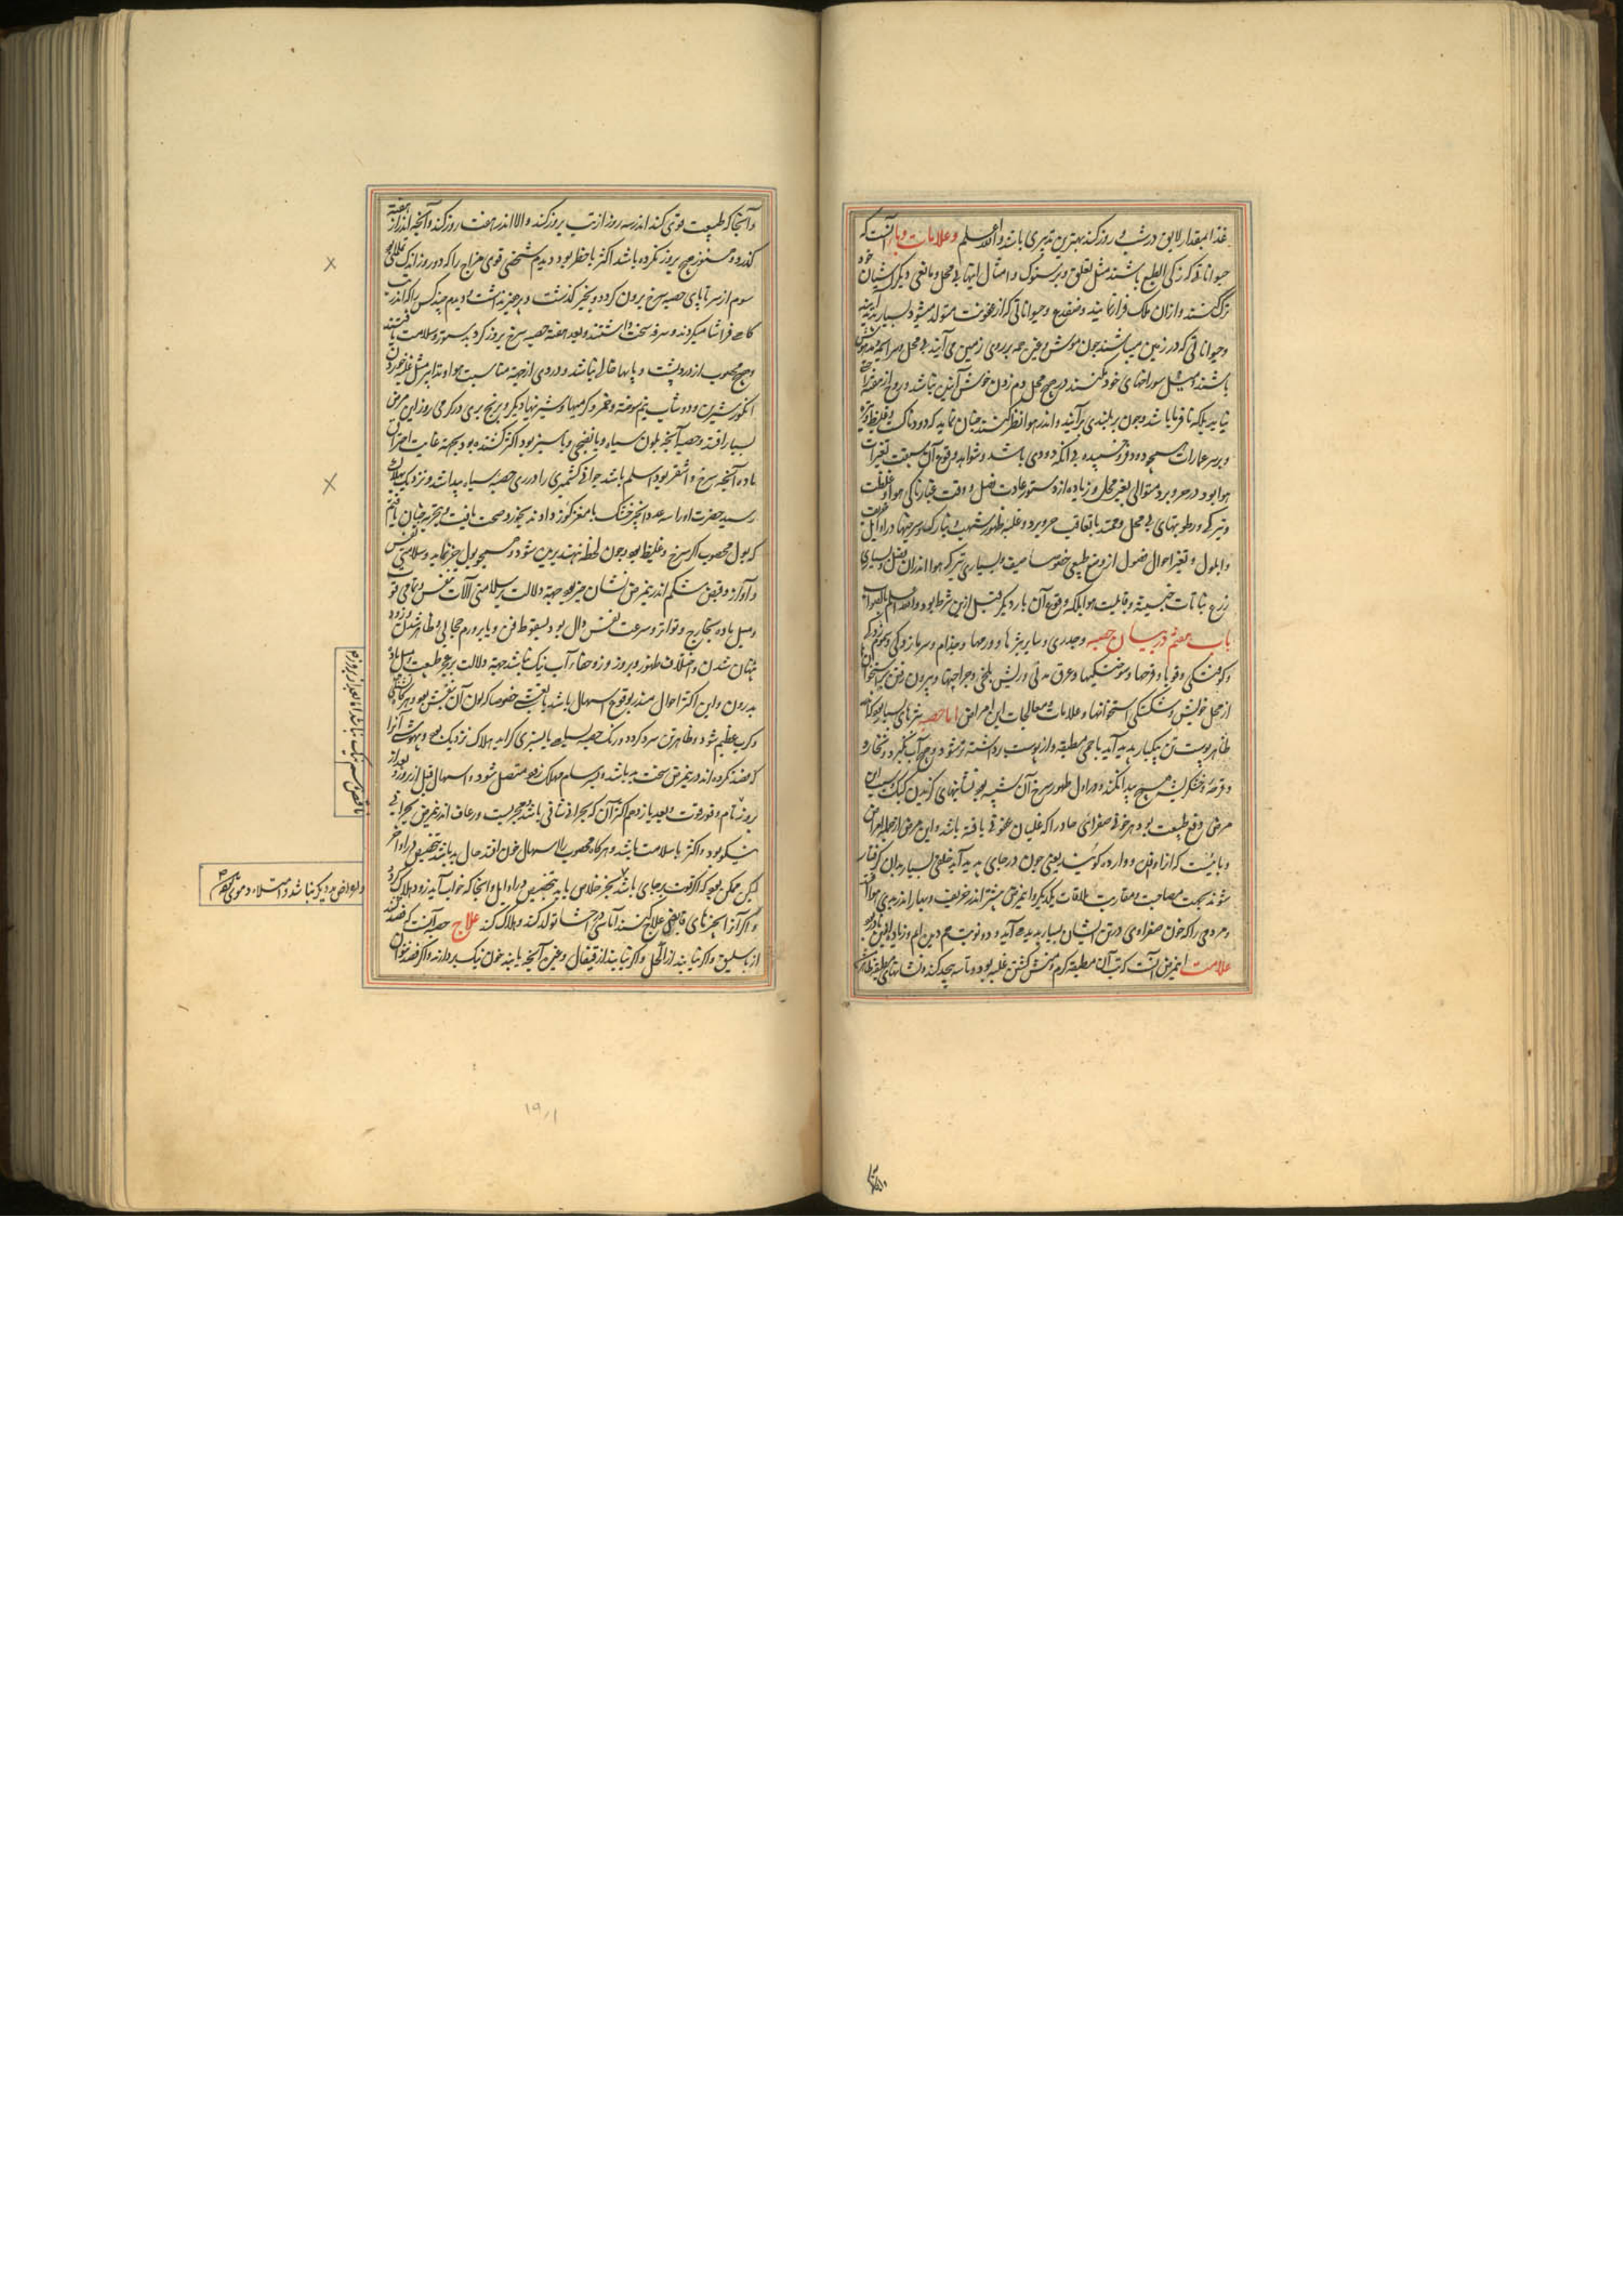 غذا بمقدار لایق در شب و روز کند بهترین تدبیری باشد والله اعلم و علامات وباء آنست که
حیواناتی که زکی الطبع باشند مثل لقلق و پرستوک و امثال اینها بی محل و مانعی دیگر آشیان خود
ترک کنند و از ان ملک فرار نمایند و ضفدع و حیواناتی که از عفونت متولد میشود بسیار پدید آیند
و حیواناتی که در زمین میباشند چون موش و غیره همه بر روی زمین می آیند بی محل و سراسیمه و مدهوش
باشند و میل سوراخهای خود نکنند در هیچ محل دم زدن خوش آیین نباشد و روح از هوا
نیابد بلکه نافر باشد و چون بر بلندی برآیند و اندر هوا نظر کنند چنان نماید که دودناک و غلیظ و تیره
و بر سر عمارات همچو دود فرو خسپیده بی انکه دودی باشد و شواهد وقوع آن سبقت تغیرات
هوا بود در حر و برد متوالی بغیر محل و زیاده از دستور عادت فصل و وقت غبارناکی هوا و غلظت
و تیرگی و رطوبتهای بی محل و عقد با تعاقب حر و برد و غلبه ظهور شهب و نیازک و سرخیها در اوایل
و ایلول و تغیر احوال فصول از وضع طبیعی خصوصا صیف و بسیاری تیرگی هوا اندران فصل و بسیاری
زرع نباتات خبیثیه و قابلیت هوا بلکه وقوع آن بار دیگر قبل ازین شرط بود والله اعلم بالصواب
باب هفتم در بیان حصبه و جدری و سایر بثرها و ورمها و جذام و سرما زدگی و هجوم زدگی
و کوفتگی و قوبا و قرحها و سوختگیها و عرق مدنی و ریش بلخی و جراحتها و بیرون رفتن استخوان
از محل خویش و شکستگی استخوانها و علامات و معالجات این امراض اما حصبه بثرهای بسیار بود که
ظاهر پوست تن بیکبار پدید آید با حمی مطبقه و از پوست برداشته تر نشود و هیچ آب نگیرد و نخارد
و قرحه و خشک ریشه هیچ پیدا نکند و در اول ظهور سرخ آن شبیه بود بنشانهای گزیدن کیک و سبب این
مرض دفع طبیعت بود هر خونی صفرائی حاد را که غلیان عفونی یافته باشد و این مرض از جمله امراض
وبائیست که ازا وافده و وارده گویند یعنی چون در جای پدید آید خلقی بسیار بدان گرفتار
شوند بجهت مصاحبت و مقاربت و ملاقات یکدیگر و این مرض بیشتر اندر خریف و بهار اندر بدی هوا افتد
و مردمی را که خون صفراوی در تن ایشان بسیار پدید آید و دو نوبت هم دیده ام و زیاد از این نادر بود
علامت این مرض آنست که تب آن مطبقه گرم و منش گشتن غلبه بود و تاسه بیحد کند و نشانهای مطبقه ظاهر
و آنجا که طبیعت قوی کند اندر سه روز از تب بروز کند و الا اندر هفت روز کند و آنچه اندر از هفته
گذرد و هنوز هیچ بروز نکرده باشد اکثر با خطر بود و دیدم شخصی قوی مزاج را که دو روز اندک
سوم از سر تا پای حصبه سرخ بیرون کرد و بخیر گذشت و پرهیز نداشت و دیدم چند کس را که اندر تب
گاهی قراشا میکردند و سرفه سخت داشتند و بعد هفته حصبه سرخ بروز کرد بدستور و سلامت یافتند
و هیچ محصوب از درد پشت و پایها خالی نباشد و دردی از جهة مناسبت هوا و تدابیر مثل غلبه خوردن
انگور شیرین و دوشاب نیم سوخته و خمر و گرمیها و شیرنیها دیگر و برنج بری در گرمی روز این مرض
بسیار افتد و حصبه آنچه بلون سیاه و یا بنفجی و یا سبز بود اکثر کشنده بود بجهة غایت احتراق
ماده آنچه سرخ و اشقر بود اسلم باشد جوانی کشمیری را در ری حصبه سیاه پیدا شد و نزدیک بهلاک
رسید حضرت او را سه عدد انجیر خشک با مغز گوز دادند بخورد و صحت یافت و بتجربه چنان یافتم
که بول محصوب اگر سرخ و غلیظ بود و چون لحظه نهند برین شود و همچو بول خر نماید و سلامتی نفس
و آواز و قبض شکم اندر این مرض نشان خیر بود جهة دلالت بر سلامتی آلات تنفس و تمامی قوت
و میل ماده بخارج و تواتر و سرعت نفس دال بود بسقوط قوت و یا بر ورم حجابی و ظاهر شدن و زود
پنهان شدن و اختلاف ظهور و بروز و زود خفاء آب نیک نباشد جهة دلالت بر عجز طبیعت و میل ماده
بدرون و این اکثر احوال منذر بوقوع اسهال باشد باعث خصوصا که لون آن بنفش بود و هرگاه غشی
و کرب عظیم شود و ظاهر تن سرد گردد و رنگ حصبه بسیاهی یا بسبزی گراید هلاک نزدیک بود و بیهوشی آنرا
که فصد نکرده اند درین مرض سخت بد باشد و بسرسام مهلک زود متصل شود و اسهال قبل از بروز و بعد از
بروز تام و فور قوت و بعد یازدهم اکثر آن که بحرانی شافی باشد مجربست و رعاف اندر این مرض بحرانی
نیکو بود و اکثر با سلامت باشد و هرگاه محصوب را اسهال خون افتد حال بد باشد بتخصیص در اواخر
لیکن ممکن بود که اگر قوت بر جای باشد بخیر خلاص یابد بتخصیص در اوایل و آنجا که خواب آید زود هلاک گردد
و اگر آنرا بچیزهای قابض علاج کنند آماسی در احشا تولد کند و هلاک کند علاج حصبه آنست که فصد کنند
از باسلیق و اگر نیابند از اکحل و اگر نیابند از قیفال و غیره آنچه یابند خون نیک بردارند و اگر فصد نتوان